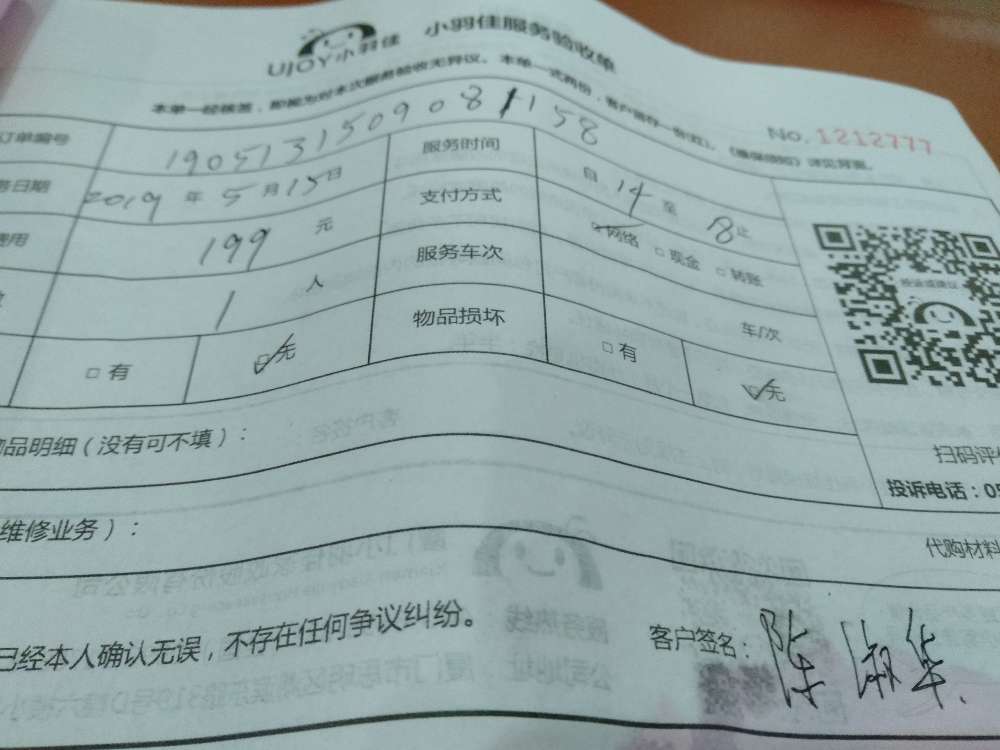 UJOY小羽佳 小羽佳服务验收单
本单一经核签，即视为对本次服务验收无异议。本单一式两份，客户留存一份
No.1212777
订单编号 1905131509081158
2019年5月15日 服务时间 自14至18止
费用 199元 支付方式 网络 现金 转账
1人 服务车次 车/次
有 无 物品损坏 有 无
物品明细（没有可不填）：
扫码评
投诉电话：05
维修业务）：
代购材料
已经本人确认无误，不存在任何争议纠纷。
客户签名：陈淑华